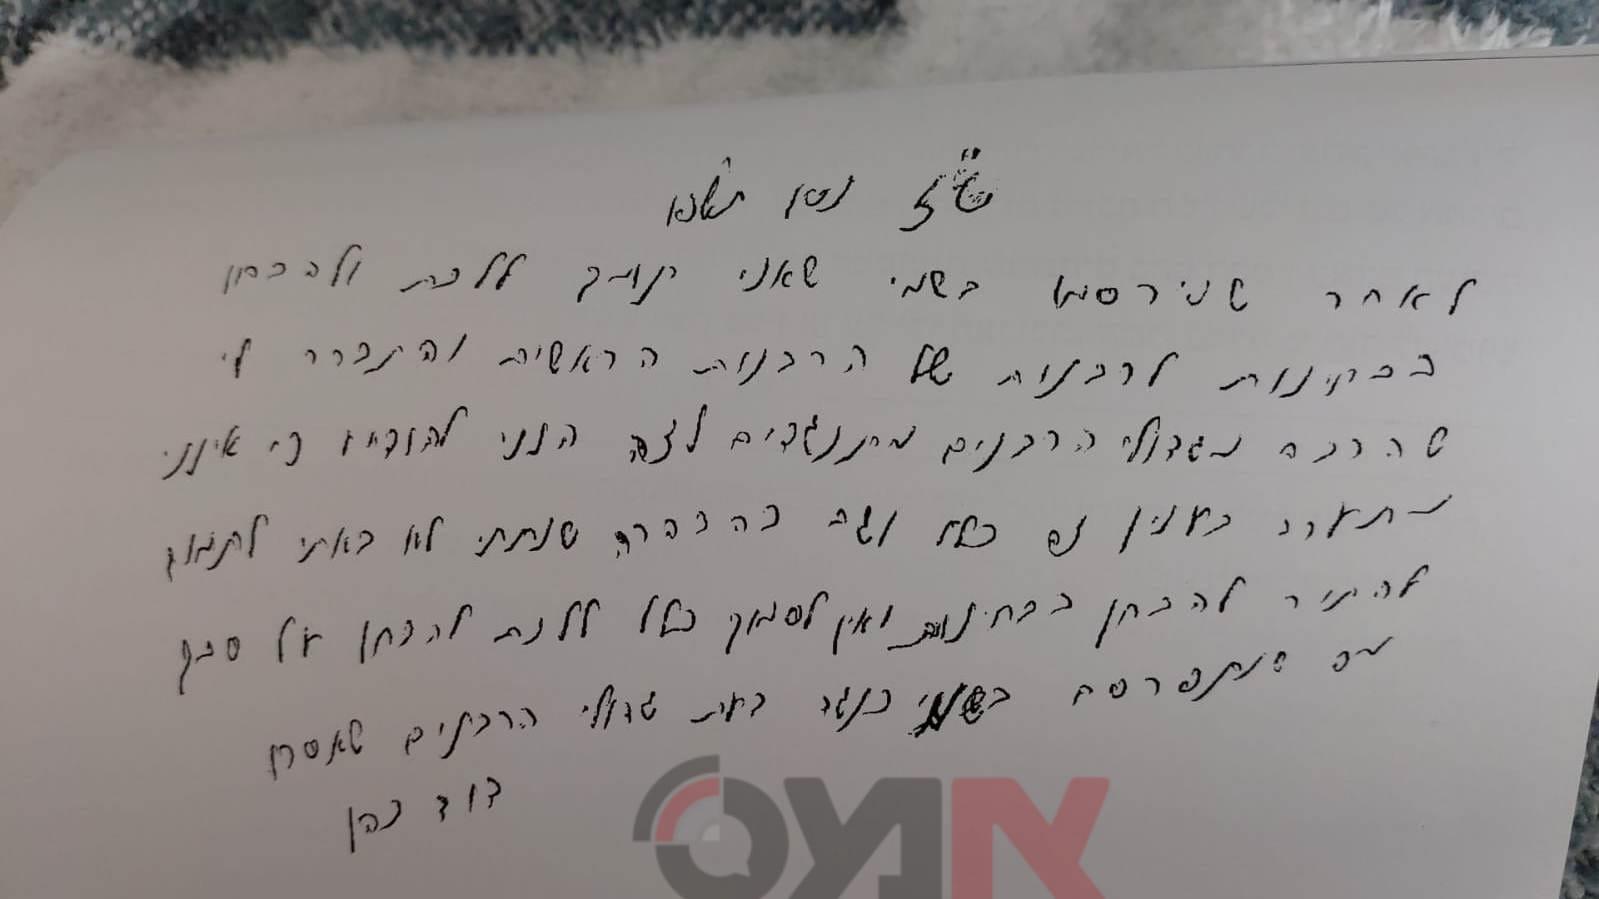 ט"ז ניסן תש"פ
לאחר שפירסמו בשמי שאני תומך ללכת ולהבחן
בבחינות לרבנות של הרבנות הראשית והתברר לי
שהרבה מגדולי הרבנים מתנגדים לצה הנני להודיע כי אינני
מתערב בענין זה כלל וגם בהבהרה שנתתי לא באתי לתמוך
להתיר להבחן בבחינות ואין לסמוך כלל ללכת להבחן על סמך
מה שנתפרסם בשמי כנגד דעת גדולי הרבנים שאסרו
דוד כהן
אמס